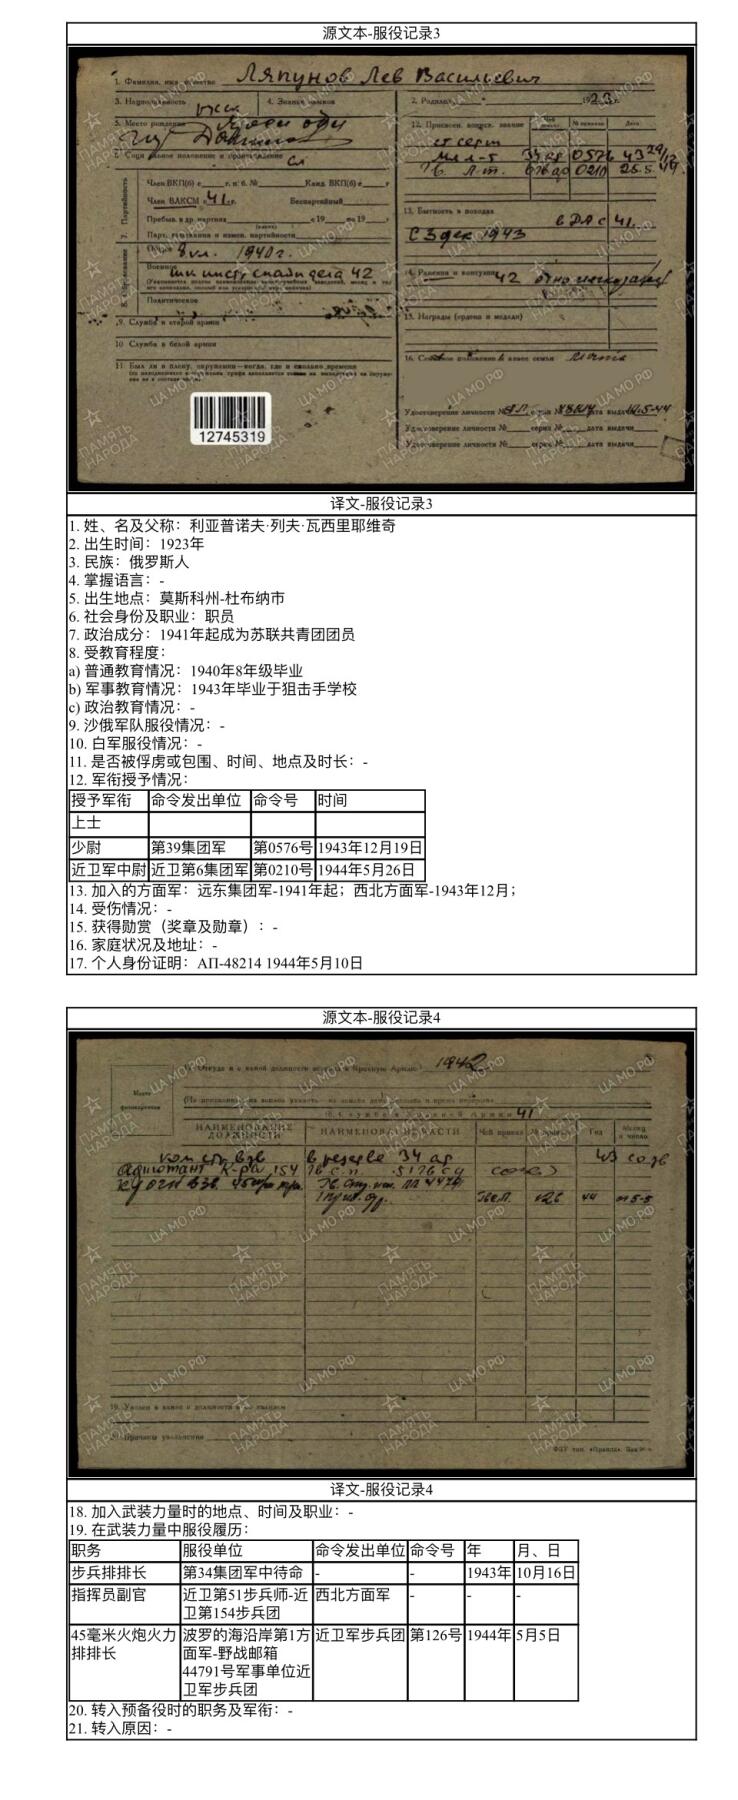 源文本-服役记录3
1. Фамилия, имя, отчество Ляпунов Лев Васильевич
3. Национальность
4. Знание языков
2. Родился
5. Место рождения
12. Присвоен. воинск. звание
№ приказа
Дата
0576
0210
Член ВКП(б) с г. п. б. № Канд. ВКП(б) г
Член ВЛКСМ с 41 г. Беспартийный
7. Партийность
13. Бытность в походах
с 41
С 3 дек 1943
1940 г.
Политическое
14. Ранения и контузии 42
9. Служба в старой армии
15. Награды (ордена и медали)
10 Служба в белой армии
11 Был ли в плену, окружении—когда, где и сколько времени
12745319
Удостоверение личности № серия № дата выдачи
Удостоверение личности № серия № дата выдачи
Удостоверение личности № серия № дата выдачи
ПАМЯТЬ НАРОДА
ЦА МО РФ
译文-服役记录3
1. 姓、名及父称：利亚普诺夫·列夫·瓦西里耶维奇
2. 出生时间：1923年
3. 民族：俄罗斯人
4. 掌握语言：-
5. 出生地点：莫斯科州-杜布纳市
6. 社会身份及职业：职员
7. 政治成分：1941年起成为苏联共青团团员
8. 受教育程度：
a) 普通教育情况：1940年8年级毕业
b) 军事教育情况：1943年毕业于狙击手学校
c) 政治教育情况：-
9. 沙俄军队服役情况：-
10. 白军服役情况：-
11. 是否被俘虏或包围、时间、地点及时长：-
12. 军衔授予情况：
授予军衔 命令发出单位 命令号 时间
上士
少尉 第39集团军 第0576号 1943年12月19日
近卫军中尉 近卫第6集团军 第0210号 1944年5月26日
13. 加入的方面军：远东集团军-1941年起；西北方面军-1943年12月；
14. 受伤情况：-
15. 获得勋赏（奖章及勋章）：-
16. 家庭状况及地址：-
17. 个人身份证明：АП-48214 1944年5月10日
源文本-服役记录4
1942
41
НАИМЕНОВАНИЕ ДОЛЖНОСТИ
НАИМЕНОВАНИЕ ЧАСТИ
Чей приказ
№ приказа
Год
Месяц и число
в резерве 34
Адъютант
154
44
ПАМЯТЬ НАРОДА
ЦА МО РФ
译文-服役记录4
18. 加入武装力量时的地点、时间及职业：-
19. 在武装力量中服役履历：
职务 服役单位 命令发出单位 命令号 年 月、日
步兵排排长 第34集团军中待命 - - 1943年 10月16日
指挥员副官 近卫第51步兵师-近 西北方面军 - - -
卫第154步兵团
45毫米火炮火力 波罗的海沿岸第1方 近卫军步兵团 第126号 1944年 5月5日
排排长 面军-野战邮箱
44791号军事单位近
卫军步兵团
20. 转入预备役时的职务及军衔：-
21. 转入原因：-